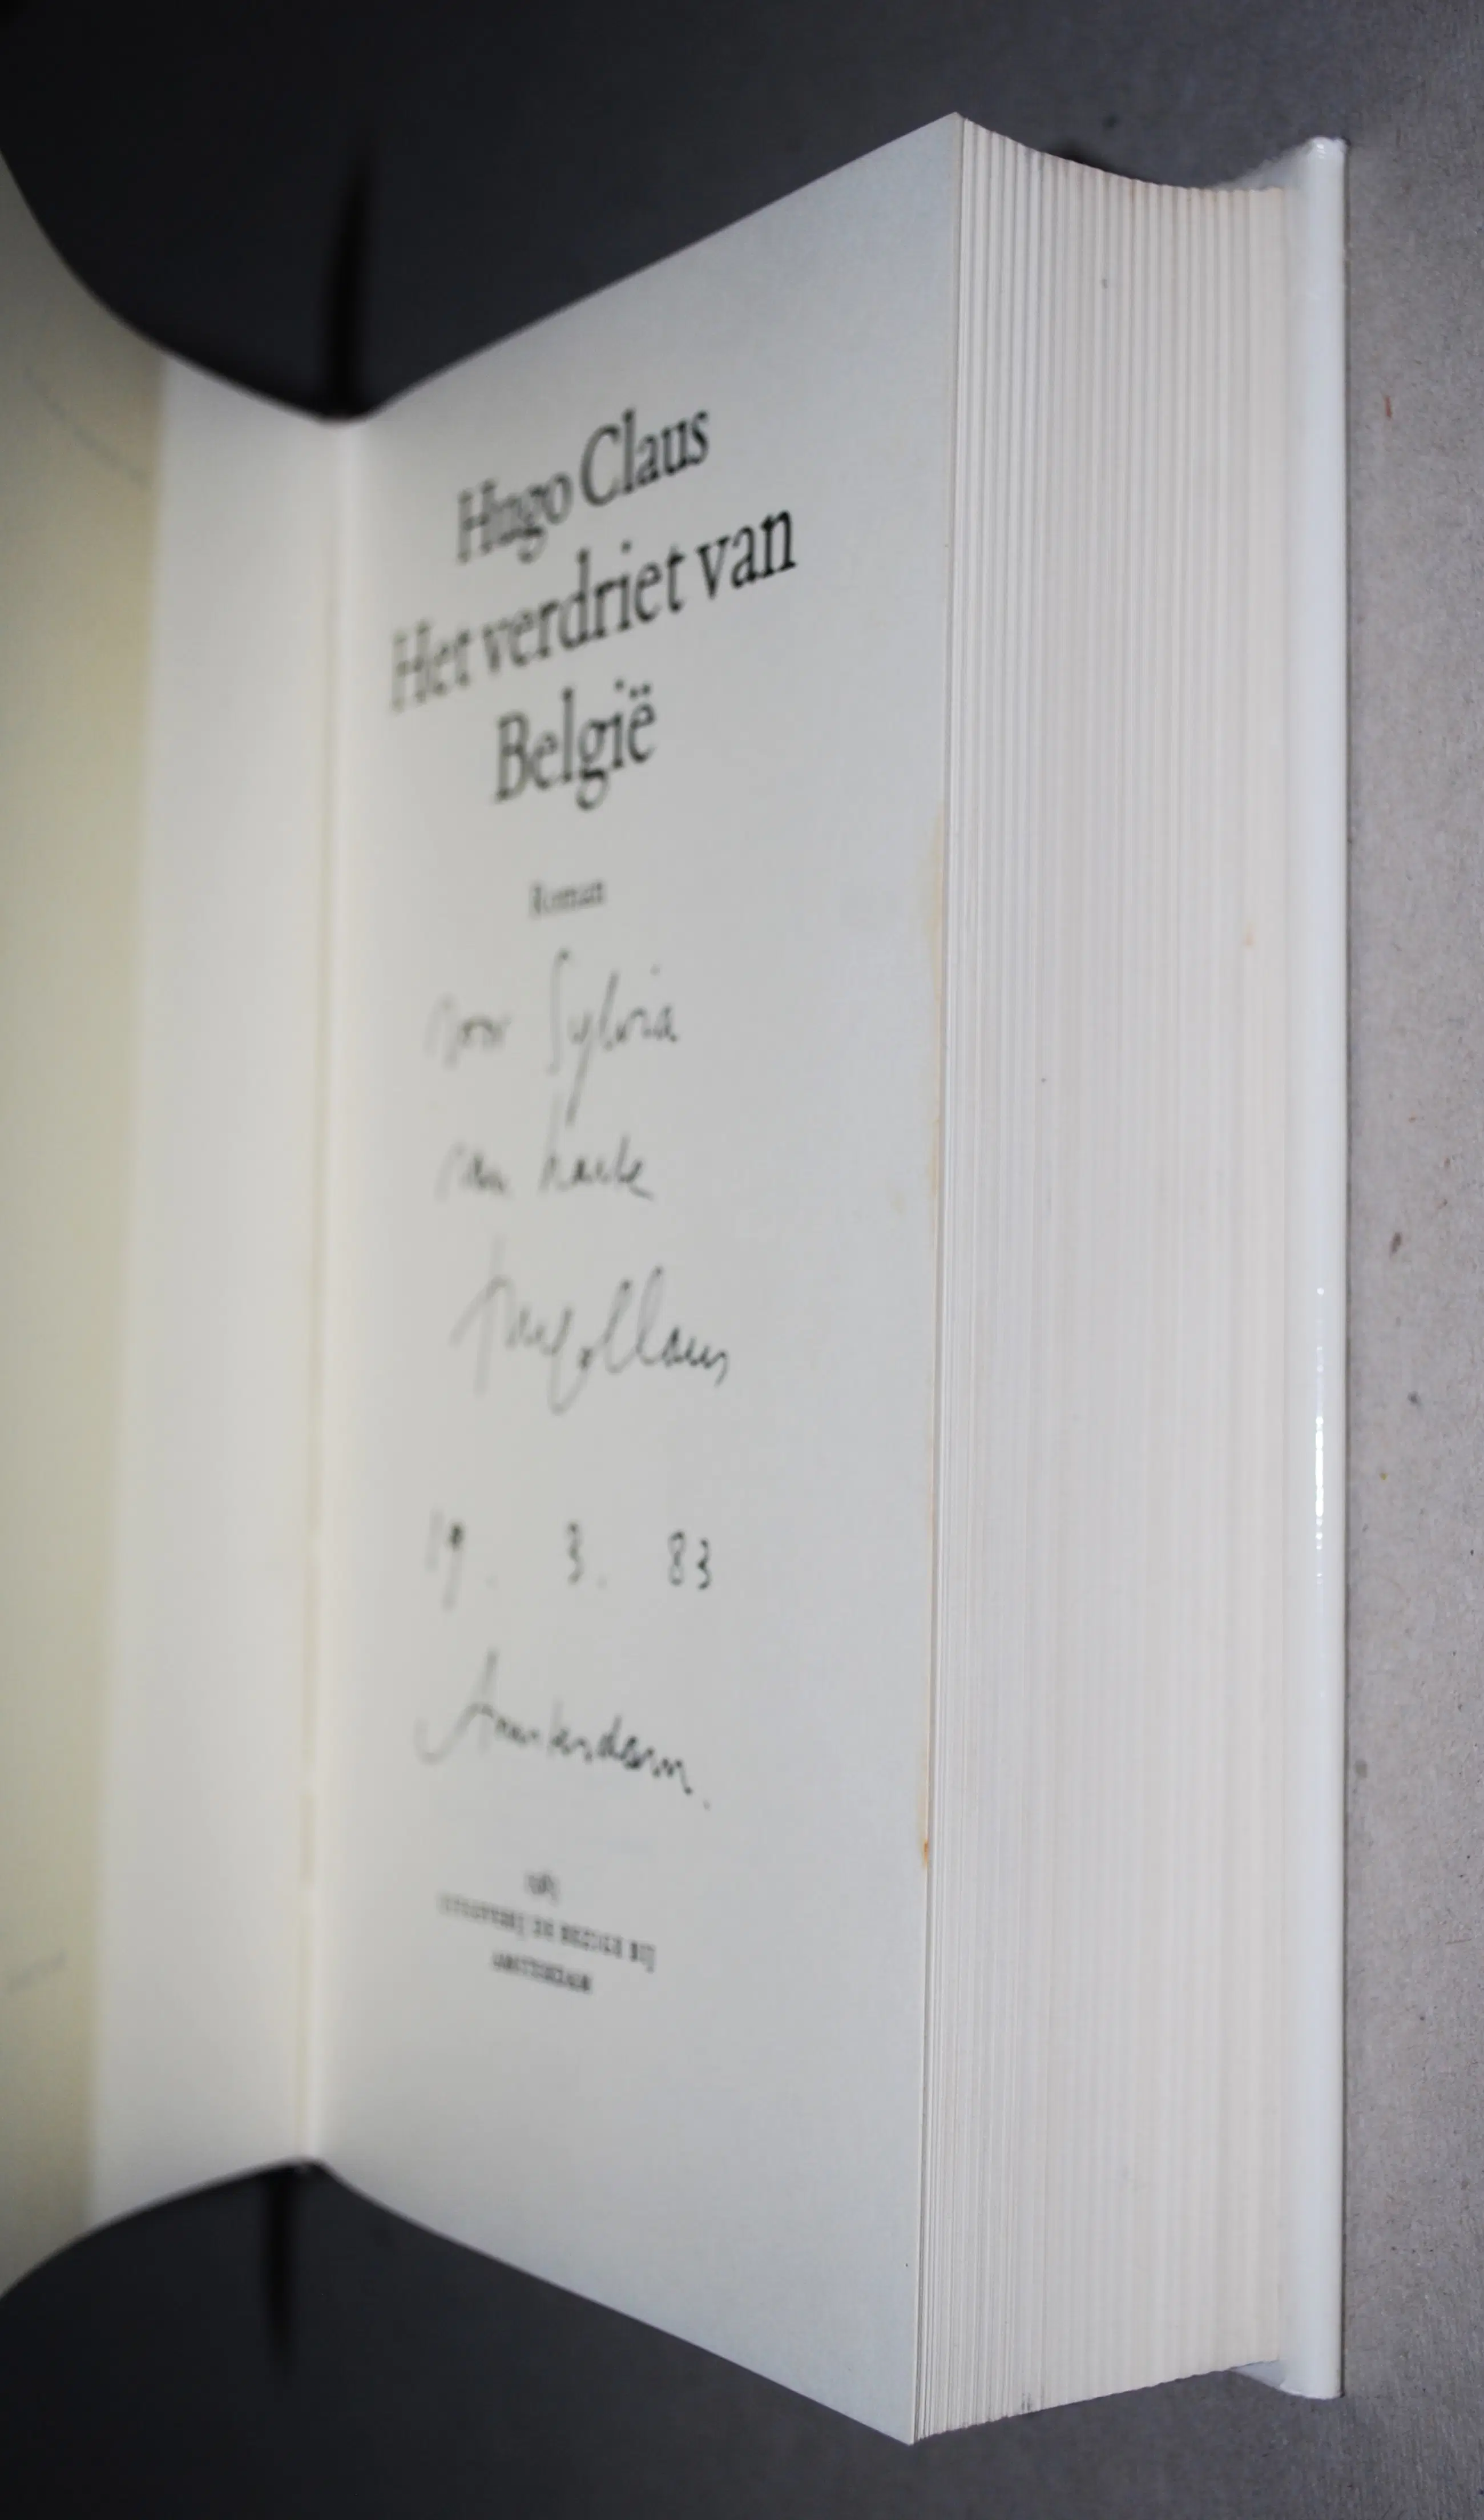 Hugo Claus
Het verdriet van
België
Roman
voor Sylvia
van harte
Hugo Claus
19. 3. 83
Amsterdam.
1983
UITGEVERIJ DE BEZIGE BIJ
AMSTERDAM